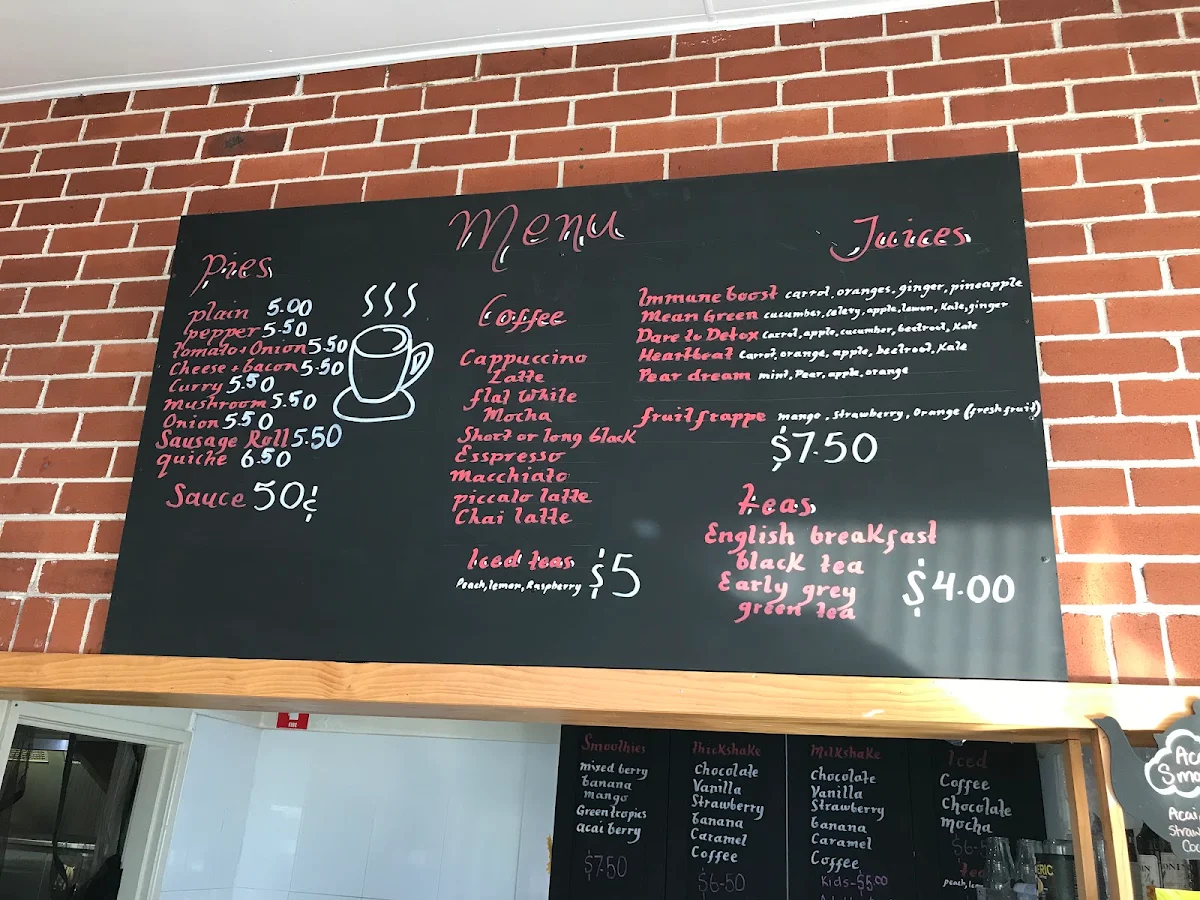 Menu
Pies
plain 5.00
pepper 5.50
tomato + Onion 5.50
Cheese + bacon 5.50
Curry 5.50
Mushroom 5.50
Onion 5.50
Sausage Roll 5.50
quiche 6.50
Sauce 50¢
Coffee
Cappuccino
Latte
flat White
Mocha
Short or long black
Esspresso
Macchiato
piccalo latte
Chai latte
Iced teas
Peach, lemon, Raspberry $5
Juices
Immune boost carrot, oranges, ginger, pineapple
Mean Green cucumber, celety, apple, lemon, Kale, ginger
Dare to Detox Carrot, apple, cucumber, beetroot, Kale
Heartbeat Carrot, orange, apple, beetroot, Kale
Pear dream mint, Pear, apple, orange
fruit frappe mango, strawberry, Orange (fresh fruit)
$7.50
teas
English breakfast
black tea
Early grey $4.00
green tea
Smoothies
mixed berry
banana
mango
Green tropics
acai berry
$7.50
thickshake
Chocolate
Vanilla
Strawberry
banana
Caramel
Coffee
$6.50
Milkshake
Chocolate
Vanilla
Strawberry
banana
Caramel
Coffee
Kids - $5.00
Iced
Coffee
Chocolate
mocha
Acai